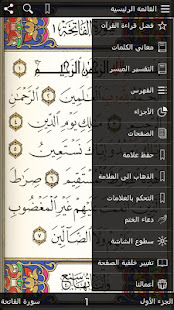 القائمة الرئيسية
فضل قراءة القرآن
معاني الكلمات
التفسير الميسر
الفهرس
الأجزاء
الصفحات
حفظ علامة
الذهاب الى العلامة
التحكم بالعلامات
دعاء الختم
سطوع الشاشة
تغيير خلفية الصفحة
أعمالنا
سورة الفاتحة
الرحمن الرحيم
العلمين
الرحمن
يوم
وإياك نستعين
صرط
عليهم غير المغضوب
الضالين
سورة الفاتحة
1
الجزء الأول